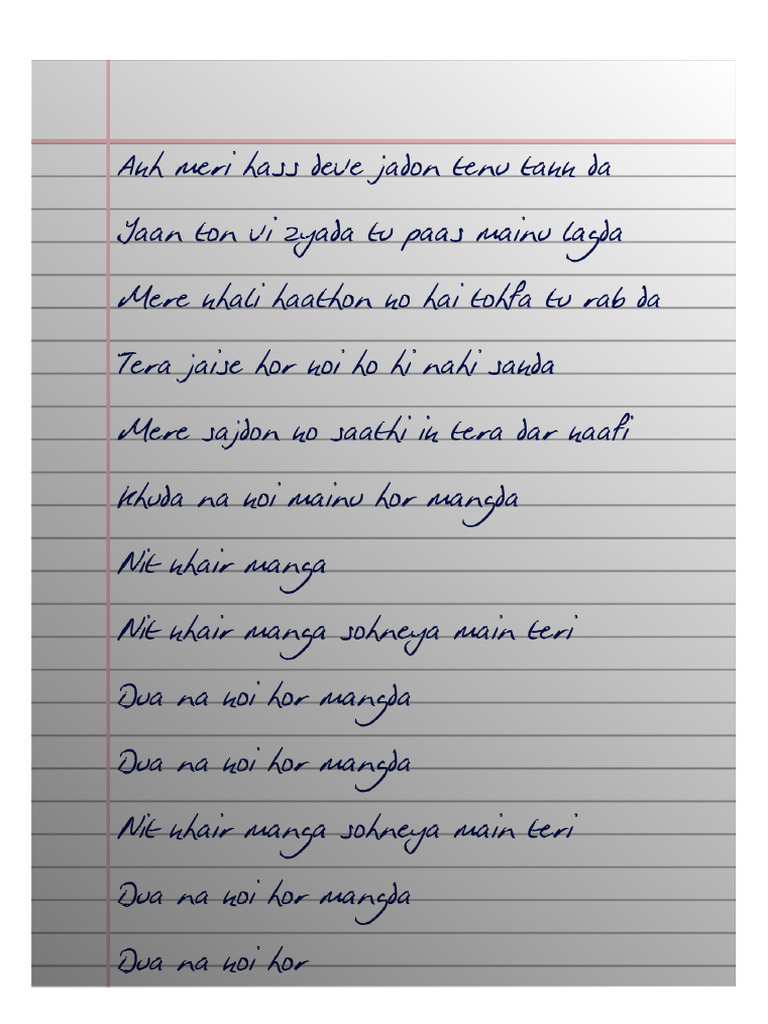 Akh meri hass deve jadon tenu takk da
Jaan ton vi zyada tu paas mainu lagda
Mere khali haathon ko hai tohfa tu rab da
Tera jaise hor koi ho hi nahi sakda
Mere sajdon ko saathi ik tera dar kaafi
Khuda na koi mainu hor mangda
Nit khair manga
Nit khair manga sohneya main teri
Dua na koi hor mangda
Dua na koi hor mangda
Nit khair manga sohneya main teri
Dua na koi hor mangda
Dua na koi hor